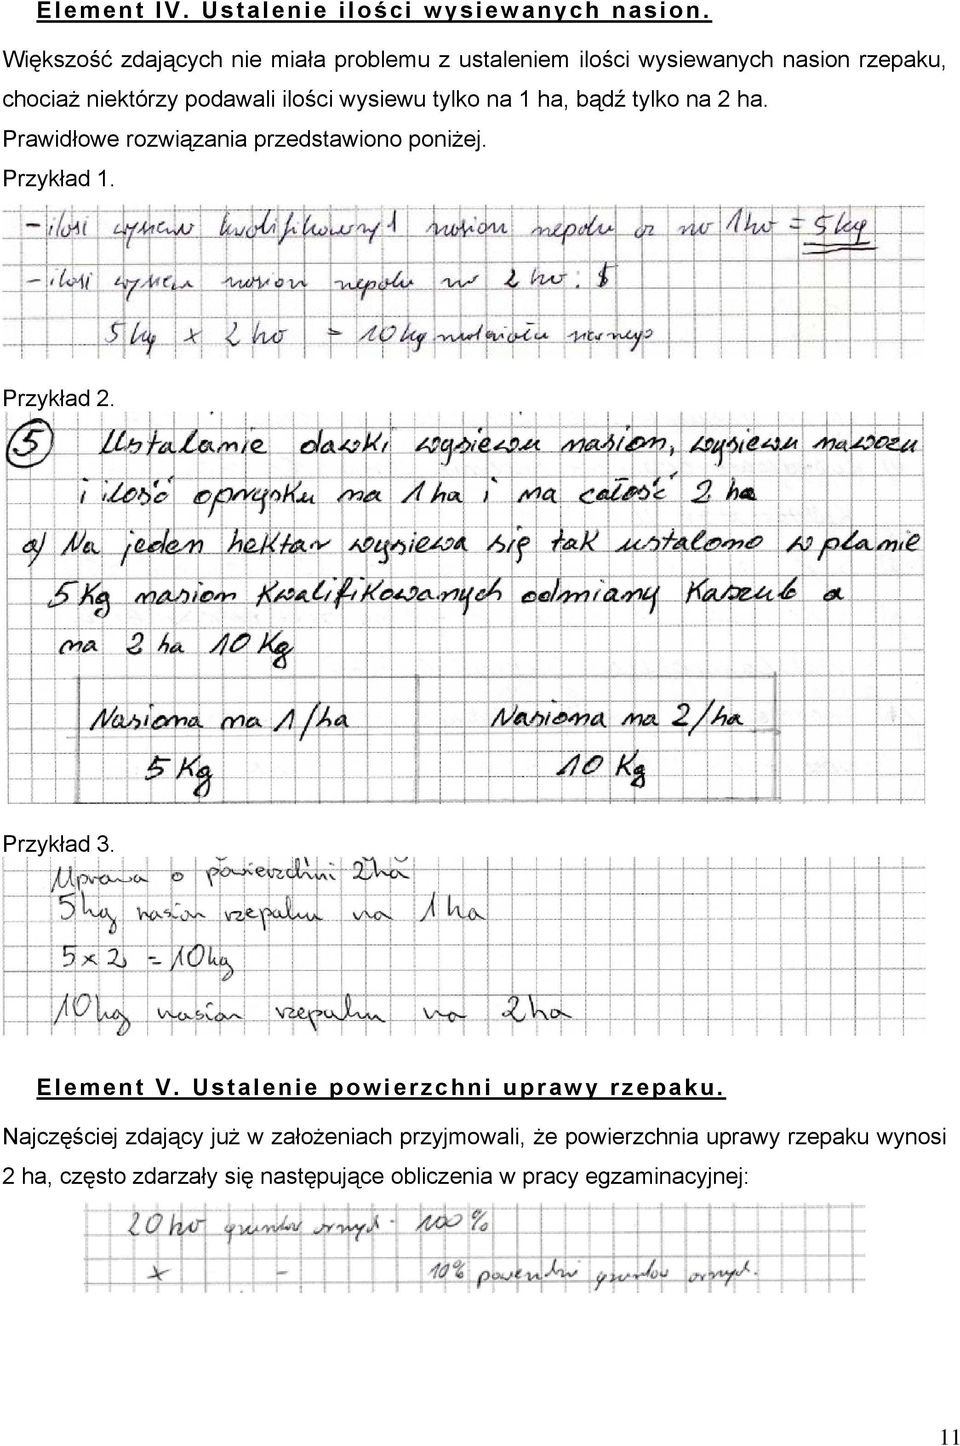 Element IV. Ustalenie ilości wysiewanych nasion.
Większość zdających nie miała problemu z ustaleniem ilości wysiewanych nasion rzepaku,
chociaż niektórzy podawali ilości wysiewu tylko na 1 ha, bądź tylko na 2 ha.
Prawidłowe rozwiązania przedstawiono poniżej.
Przykład 1.
- ilości wysiewu kwalifikowanych nasion rzepaku na 1 ha = 5 kg
- ilości wysiewu nasion rzepaku na 2 ha:
5 kg x 2 ha = 10 kg materiału siewnego
Przykład 2.
5 Ustalanie dawki wysiewu nasion, wysiewu nawozu
i ilość oprysku na 1 ha i na całość 2 ha
a) Na jeden hektar wysiewa się tak ustalono w planie
5 Kg nasion Kwalifikowanych odmiany Kaszub a
na 2 ha 10 Kg
Nasiona na 1/ha Nasiona na 2/ha
5 Kg 10 Kg
Przykład 3.
Uprawa o powierzchni 2ha
5kg nasion rzepaku na 1 ha
5 x 2 = 10kg
10kg nasion rzepaku na 2ha
Element V. Ustalenie powierzchni uprawy rzepaku.
Najczęściej zdający już w założeniach przyjmowali, że powierzchnia uprawy rzepaku wynosi
2 ha, często zdarzały się następujące obliczenia w pracy egzaminacyjnej:
20 ha gruntów ornych - 100%
x - 10% powierzchni gruntów ornych.
11